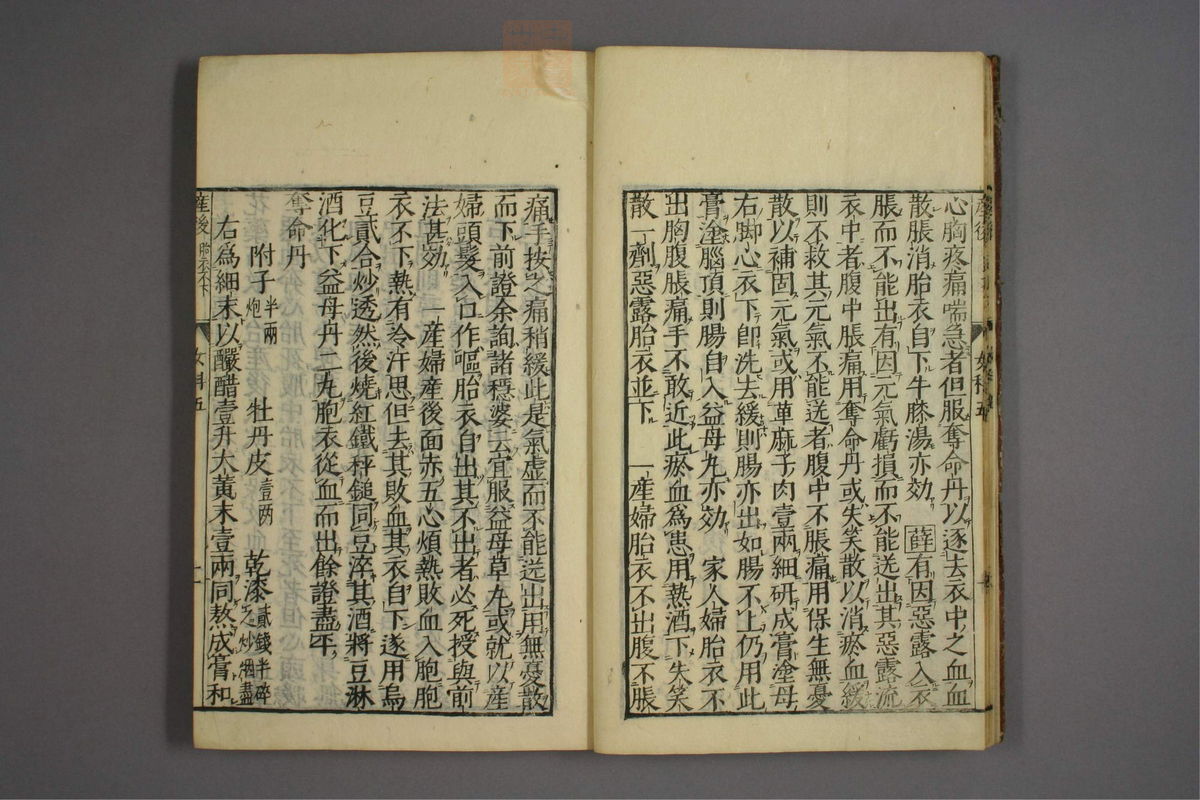 心胸疼痛喘急者但服奪命丹以逐去衣中之血血
散脹消胎衣自下牛膝湯亦効　薛有因惡露入衣
脹而不能出有因元氣虧損而不能送出其惡露流
衣中者腹中脹痛用奪命丹或失笑散以消瘀血緩
則不救其元氣不能送者腹中不脹痛用保生無憂
散以補固元氣或用萆麻子肉壹兩細研成膏塗母
右脚心衣下卽洗去緩則腸亦出如腸不上仍用此
膏塗腦頂則腸自入益母丸亦効　家人婦胎衣不
出胸腹脹痛手不敢近此瘀血為患用熱酒下失笑
散一劑惡露胎衣並下　一產婦胎衣不出腹不脹
痛手按之痛稍緩此是氣虚而不能送出用無憂散
而下前證余詢諸穩婆云宜服益母草丸或就以產
婦頭髮入口作嘔胎衣自出其不出者必死授與前
法甚効　一産婦產後面赤五心煩熱敗血入胞胞
衣不下熱有冷汗思但去其敗血其衣自下遂用烏
豆貳合炒透然後燒紅鐵秤鎚同豆淬其酒將豆淋
酒化下益母丹二丸胞衣從血而出餘證盡平
奪命丹
附子半兩炮　牡丹皮壹兩　乾漆貳錢半碎之炒烟盡
右為細末以釅醋壹升大黃末壹兩同熬成膏和
産後　胎衣不下　女科五